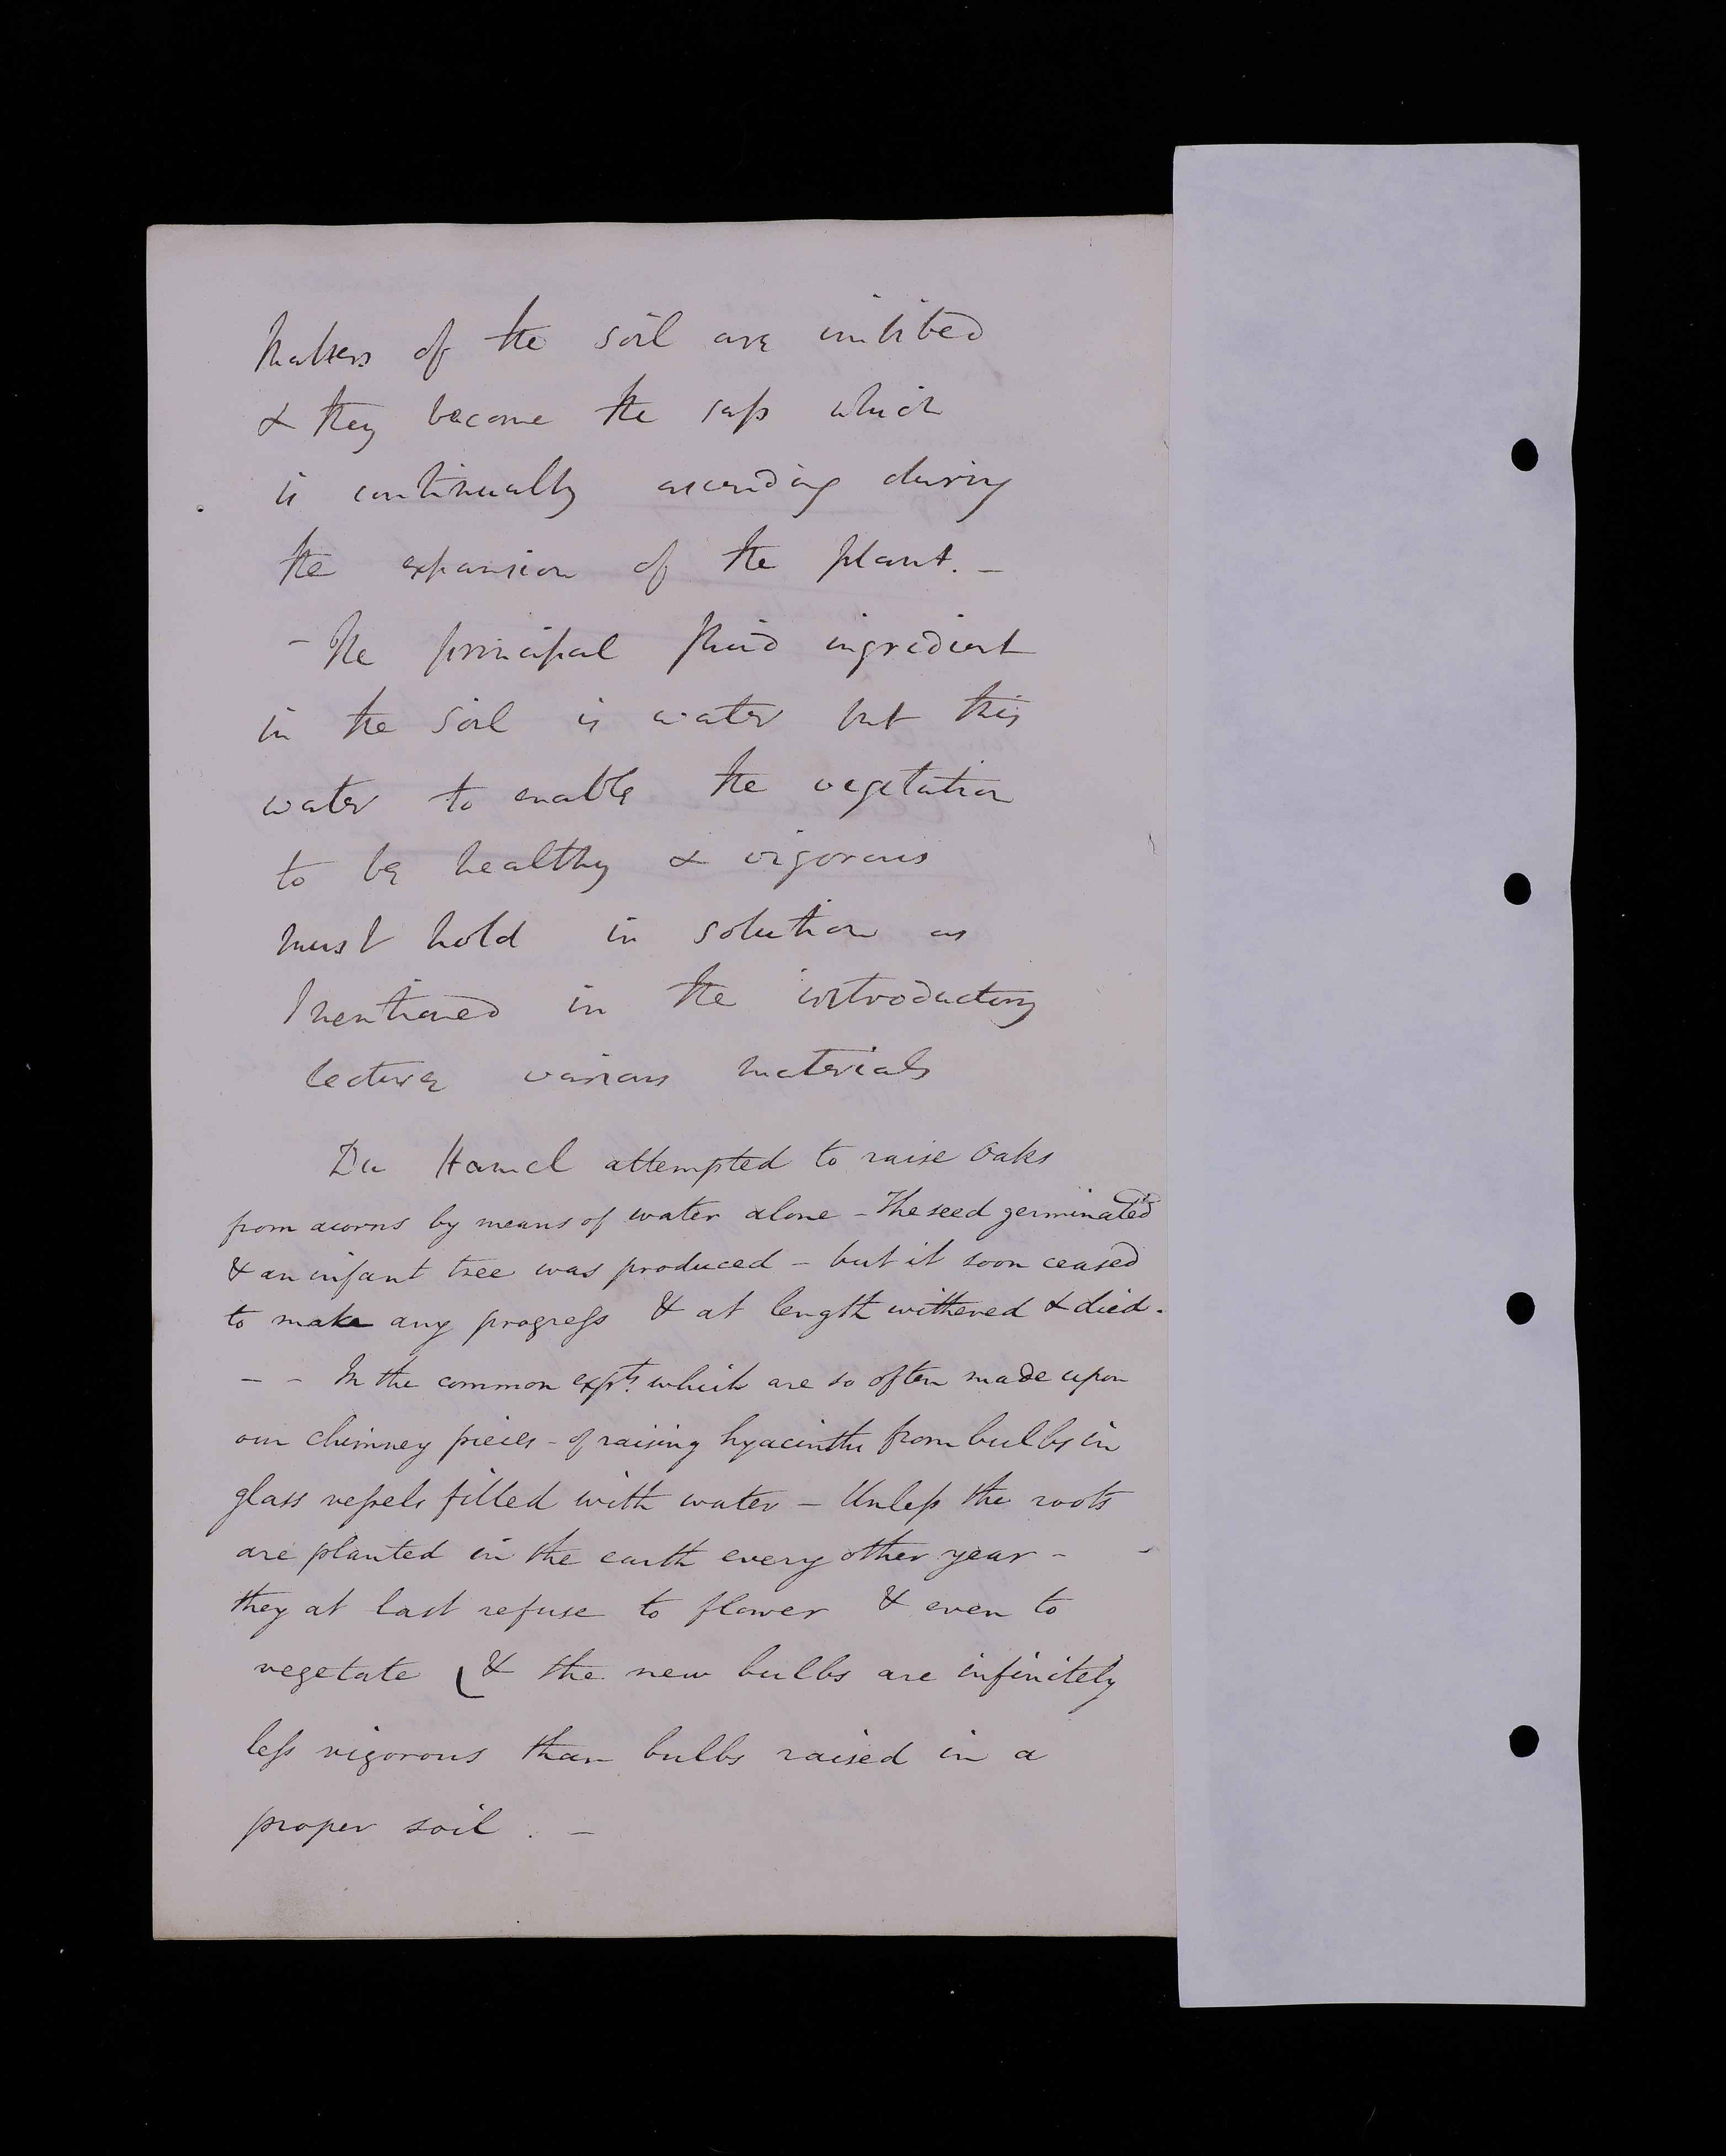 Matters of the soil are imbibed
& they become the sap which
is continually ascending during
the expansion of the plant. –
– The principal fluid ingredient
in the soil is water but this
water to enable the vegetation
to be healthy & vigorous
must hold in solution as
I mentioned in the introductory
lecture various materials
Du Hamel attempted to raise Oaks
from acorns by means of water alone – The seed germinated
& an infant tree was produced – but it soon ceased
to make any progress & at length withered & died.
– – In the common expts. which are so often made upon
our chimney pieces – of raising hyacinths from bulbs in
glass vessels filled with water – Unless the roots
are planted in the earth every other year –
they at last refuse to flower & even to
vegetate (& the new bulbs are infinitely
less vigorous than bulbs raised in a
proper soil. –